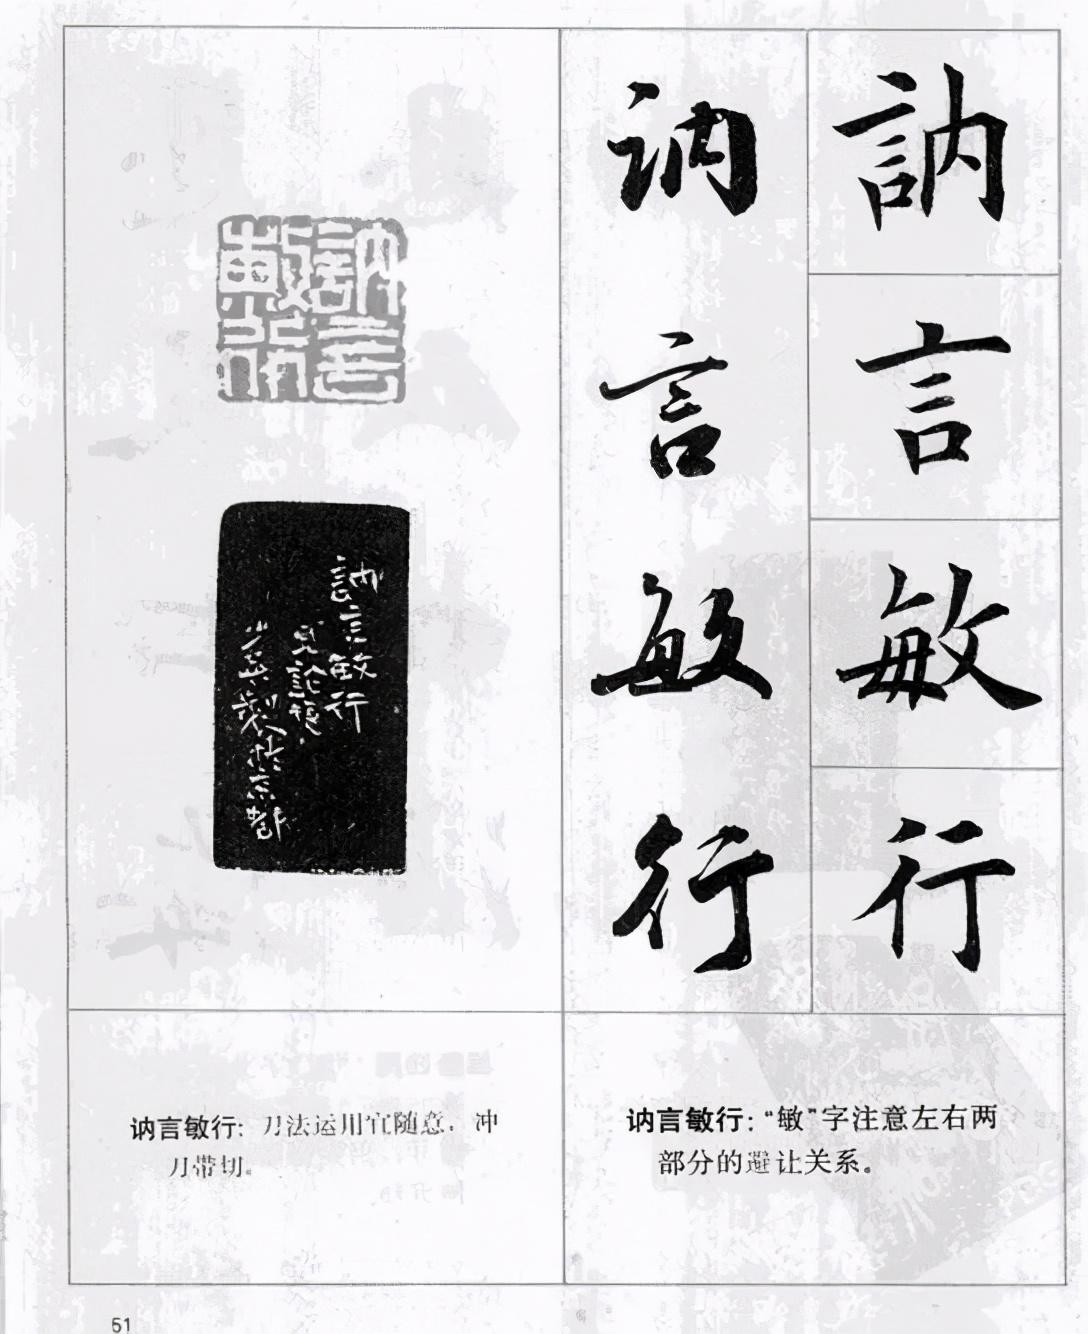 訥言敏行
讷言敏行
訥言敏行
訥言敏行
見論語
製於京都
讷言敏行：刀法运用宜随意，冲
刀带切。
讷言敏行：“敏”字注意左右两
部分的避让关系。
51